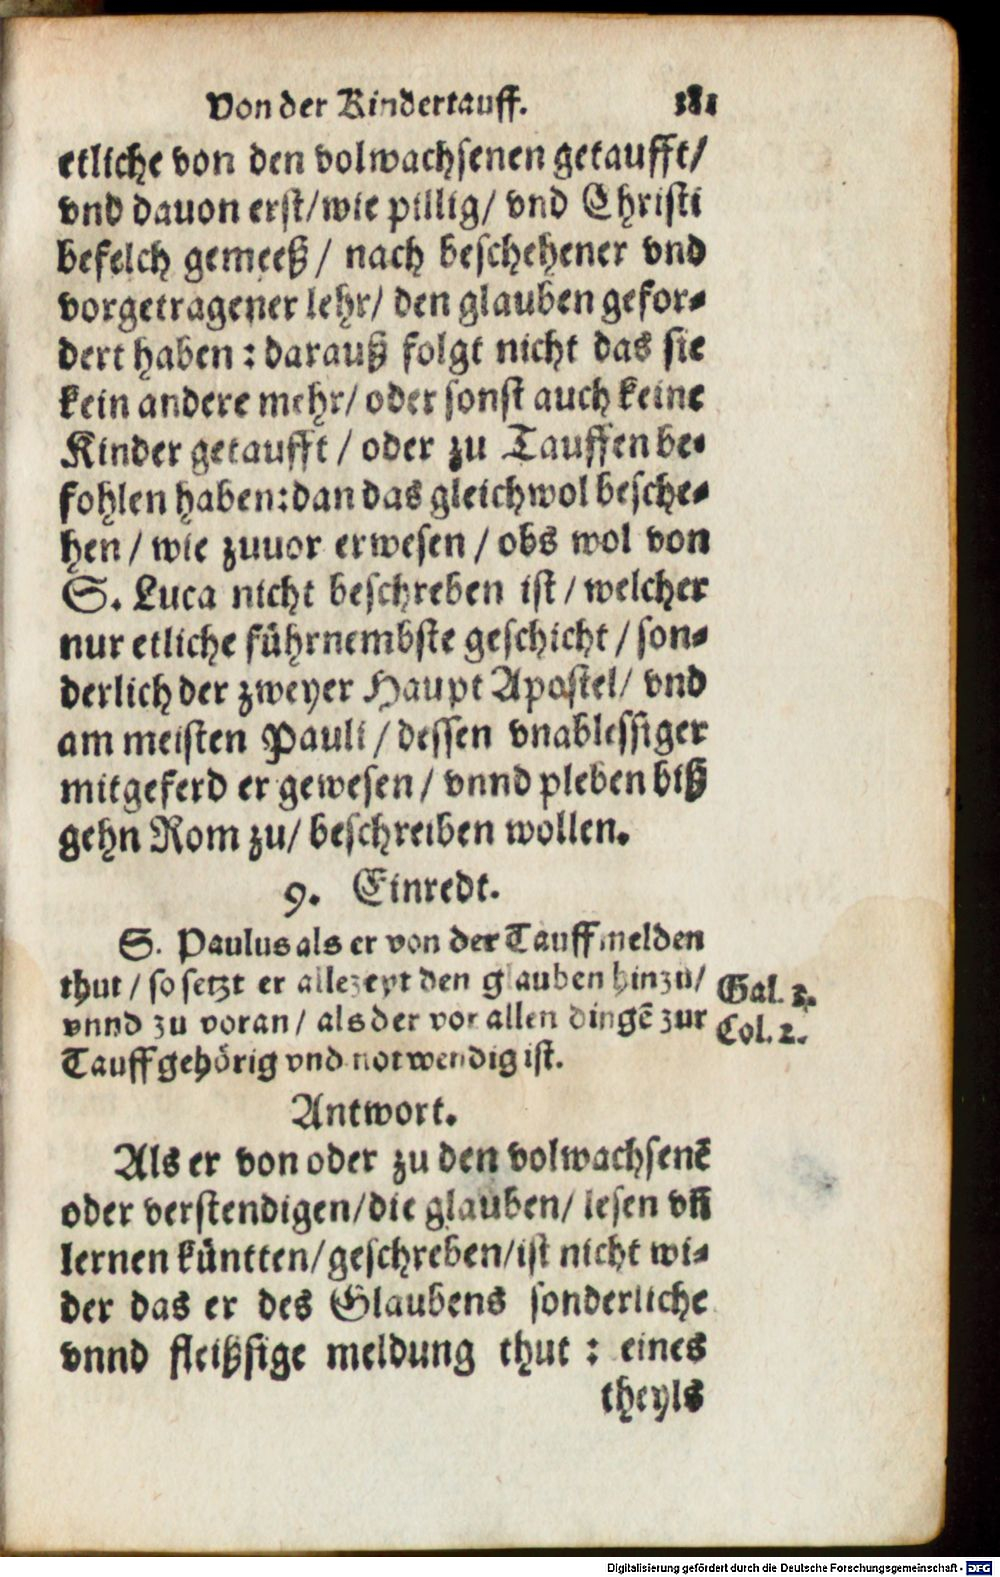 Von der Kindertauff. 181
etliche von den volwachsenen getaufft/
vnd dauon erst/wie pillig/ vnd Christi
befelch gemeeß/ nach beschehener vnd
vorgetragener lehr/ den glauben gefor-
dert haben: darauß folgt nicht das sie
kein andere mehr/ oder sonst auch keine
Kinder getaufft/ oder zu Tauffen be-
fohlen haben: dan das gleichwol besche-
hen/ wie zuuor erwesen/ obs wol von
S. Luca nicht beschreben ist/ welcher
nur etliche führnembste geschicht/ son-
derlich der zweyer Haupt Apostel/ vnd
am meisten Pauli/ dessen vnablessiger
mitgeferd er gewesen/ vnnd pleben biß
gehn Rom zu/ beschreiben wollen.
9. Einredt.
S. Paulus als er von der Tauff melden
thut/ so setzt er allezeyt den glauben hinzu/
vnnd zu voran/ als der vor allen dingē zur
Tauff gehörig vnd notwendig ist.
Gal. 3.
Col. 2.
Antwort.
Als er von oder zu den volwachsenē
oder verstendigen/die glauben/ lesen vñ
lernen küntten/geschreben/ist nicht wi-
der das er des Glaubens sonderliche
vnnd fleißsige meldung thut: eines
theyls
Digitalisierung gefördert durch die Deutsche Forschungsgemeinschaft - DFG